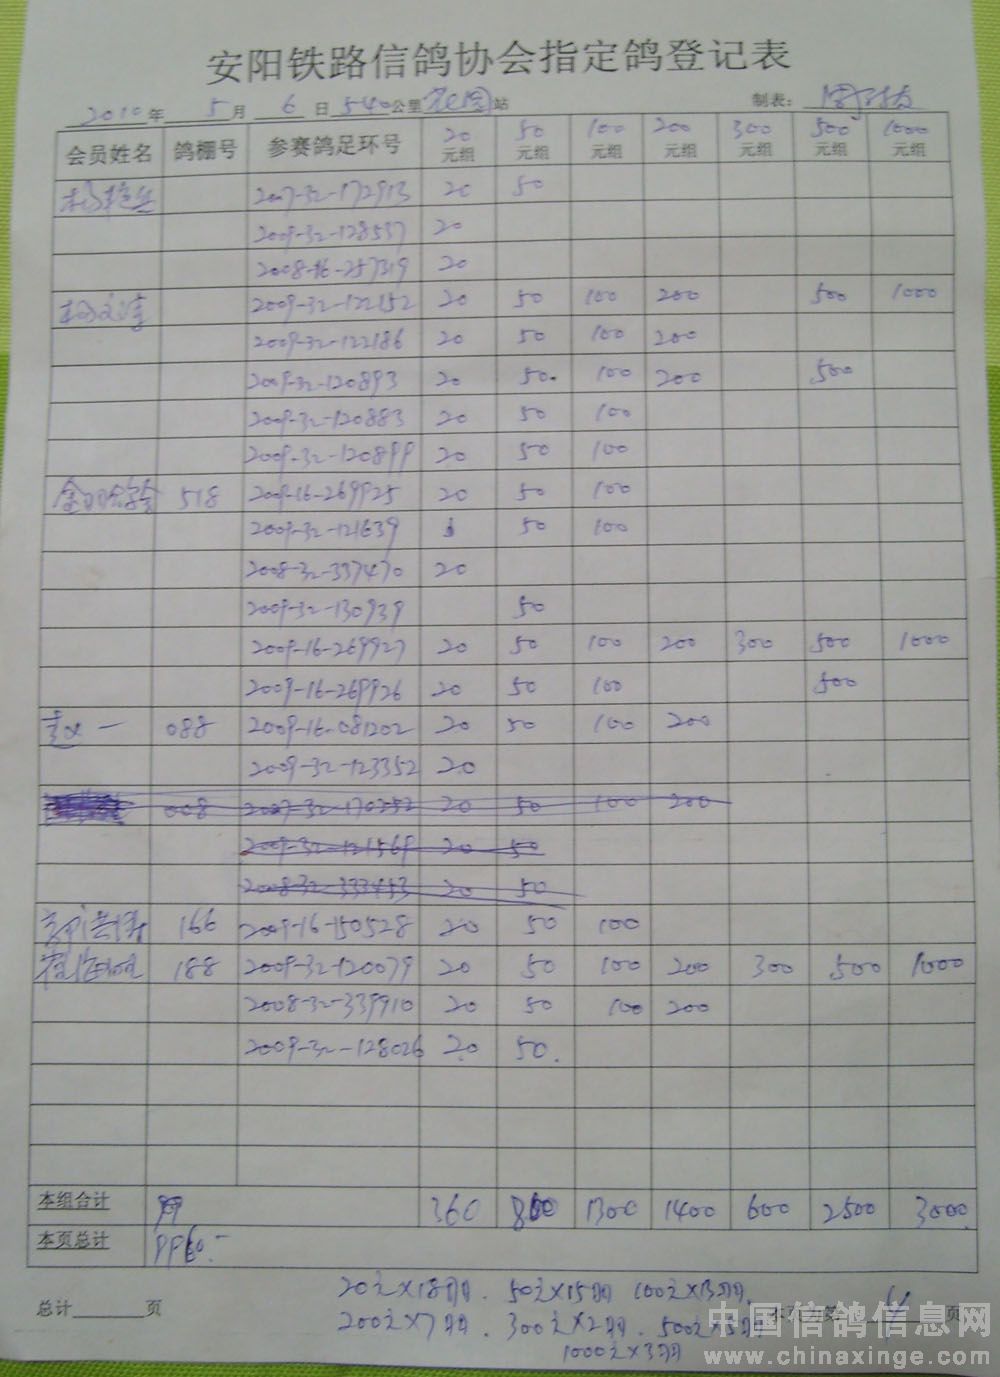 安阳铁路信鸽协会指定鸽登记表
2010年 5月 6日 540公里花园站 制表:
会员姓名 鸽棚号 参赛鸽足环号 20元组 50元组 100元组 200元组 300元组 500元组 1000元组
2007-32-172913 20 50
2009-32-128537 20
2008-16-257319 20
2009-32-122152 20 50 100 200 500 1000
2009-32-122186 20 50 100 200
2009-32-120893 20 50. 100 200 500
2009-32-120883 20 50 100
2009-32-120899 20 50 100
518 2009-16-269925 20 50 100
2009-32-121639 50 100
2008-32-337470 20
2009-32-130939 50
2009-16-269927 20 50 100 200 300 500 1000
2009-16-269926 20 50 100 500
一 088 2009-16-081202 20 50 100 200
2009-32-123352 20
008 2007-32-170252 20 50 100 200
2009-32-121569 20 50
2008-32-333453 20 50
166 2009-16-150528 20 50 100
188 2009-32-120079 20 50 100 200 300 500 1000
2008-32-339910 20 50 100 200
2009-32-128026 20 50.
本组合计 360 800 1300 1400 600 2500 3000
本页总计
20元×18羽. 50元×15羽 100元×13羽.
总计 页 本页为第 页
200元×7羽. 300元×2羽. 500元×5羽
1000元×3羽
中国信鸽信息网
www.chinaxinge.com